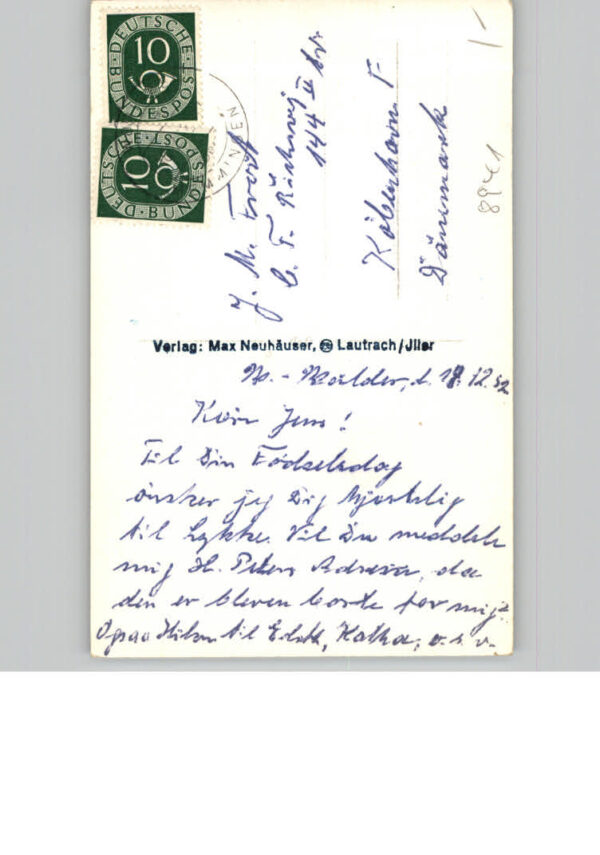 DEUTSCHE BUNDESPOST
10
DEUTSCHE BUNDESPOST
10
MINGEN
J. M. Frost
C. F. Richsvej
144 II tv.
København F
Dänmark
8941
Verlag: Max Neuhäuser, Lautrach/Jller
d. 18.12.52
Kære Jens!
Til Din Födselsdag
önsker jeg Dig hjertelig
til Lykke. Vil Du meddele
mig H. Peters Adresse, da
den er bleven borte for mig.
Ogsaa Hilsen til Edith, Katha, o.s.v.